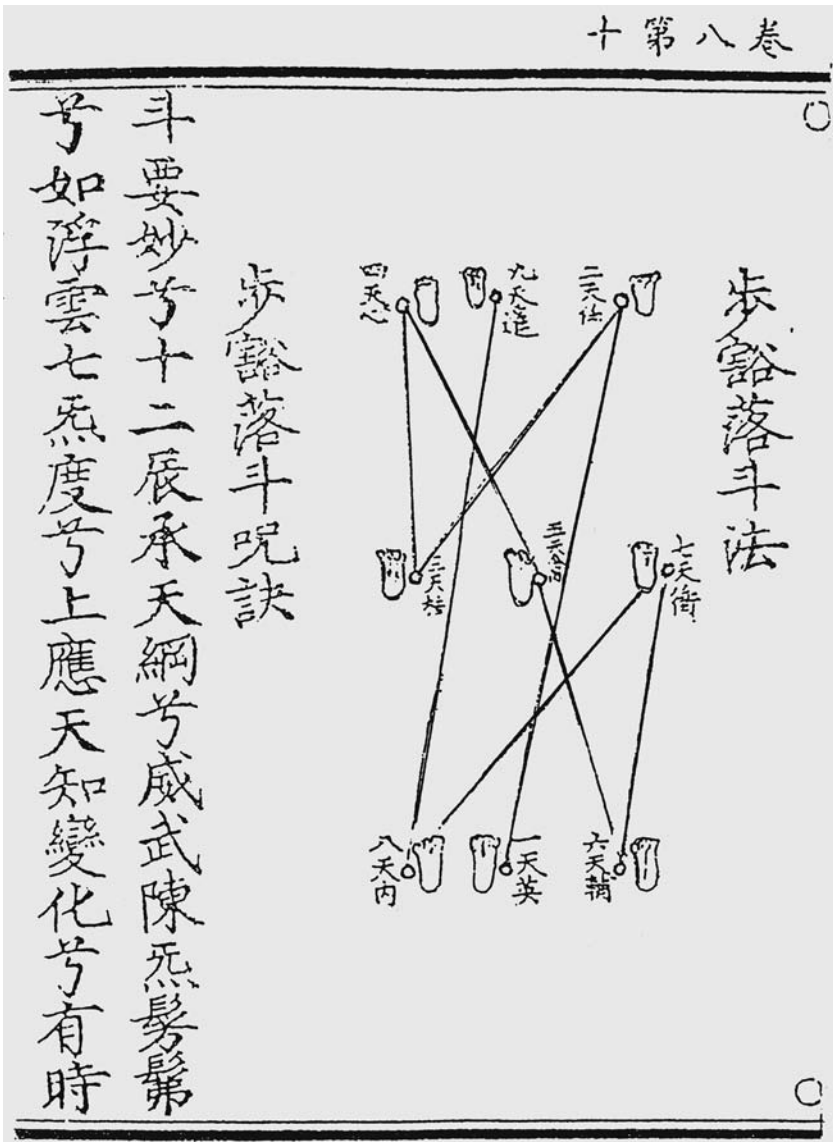 卷八第十
步豁落斗法
二天任
九天蓬
四天心
七天衝
五天禽
三天柱
六天輔
一天英
八天内
步豁落斗呪訣
斗要妙兮十二辰承天綱兮威武陳炁髣髴
兮如浮雲七炁度兮上應天知變化兮有時